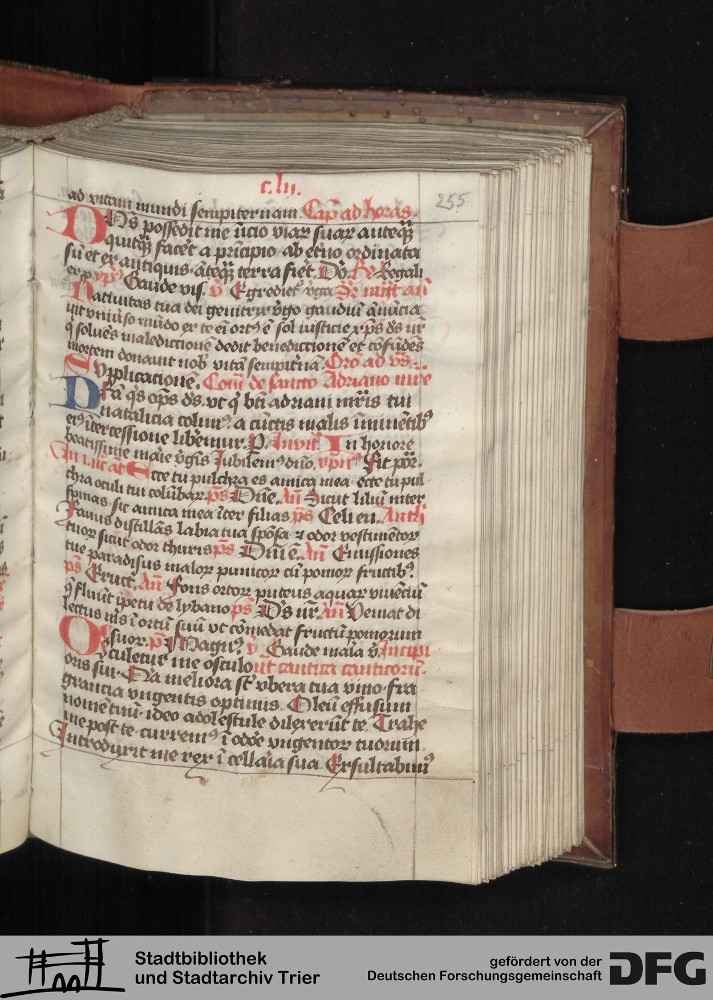 c. lii.
255
ad vitam mundi sempiternam. Cap̄ ad horas.
Dn̄s possedit me īicio viaꝝ suaꝝ anteqͣꝫ
quitqͣꝫ facet̄ a prīcipio ab et̄no ordinata
sū et ex antiquis āteqͣꝫ terra fiet. Dō. Rx Regali
ex p. vꝑs Gaude vīs. v̄ Egrediet᷑ v̄ga
Natiuitas tua dei genitrix v̄go gaudiū ānūcia
uit vniūso mūdo ex te ei ort᷒ ē sol iusticie xp̄s ds̄ nr̄
qͥ soluēs maledictionē dedit benedictionē et cōfūdēs
mortem donauit nob̄ vitā sempit̄nā. Orō ad vs̄
Supplicacionē. Com̄ de sancto Adriano mr̄e
Dr̄a qs̄ op̄s ds̄. vt qͥ bt̄i adriani mr̄is tui
natalicia colim᷒ a cūctis malis īminētib᷒
ei᷒ īt̄cessione libem̄ur. P. Inuit̄. In honore
beatissime marie v̄gīs Jubilem᷒ dn̄o. Fit por̄.
Ecce tu pulchra es amica mea ecce tu pul
chra oculi tui colūbaꝝ. ps̄ Dn̄e. An̄ Sicut liliū inter
spinas sic amica mea īter filias ps̄ Celi en. Anth̄
Fauus distillās labia tua spōsa ⁊ odor vestimētoꝝ
tuoꝝ sicut odor thuris ps̄ Dn̄i ē. An̄ Emissiones
tue paradisus maloꝝ punicoꝝ cū pomoꝝ fructib᷒.
ps̄ Eruct. An̄ Fons ortoꝝ puteus aquaꝝ viuētiū
qͥ fluūt īpetu de lybano ps̄ Ds̄ nr̄. An̄ Veniat di
lectus m̄s ī ortū suū vt comedat fructū pomorum
suoꝝ. ps̄ Magn᷒. v̄ Gaude maīa v̄. Incipi
Osculetur me osculo ūt cantica canticoꝝ.
oris sui. Qr̄a meliora st̄ vbera tua vino fra
grancia vngentis optimis. Oleū effusum
nomē tuū. ideo adolescētule dilexerūt te. Trahe
me post te. currem᷒ ī odōe vngentoꝝ tuorum
Introduxit me rex ī cellaīa sua. Exsultabim᷒
Stadtbibliothek
und Stadtarchiv Trier
gefördert von der
Deutschen Forschungsgemeinschaft
DFG